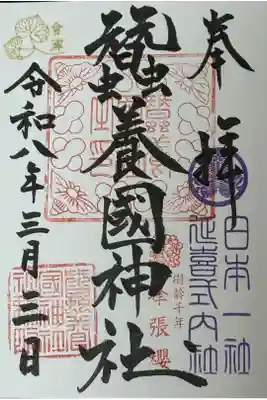 奉拝
日本一社
延喜式内社
樹齢千年
峰張櫻
蠶養國神社
會津
令和八年三月三日